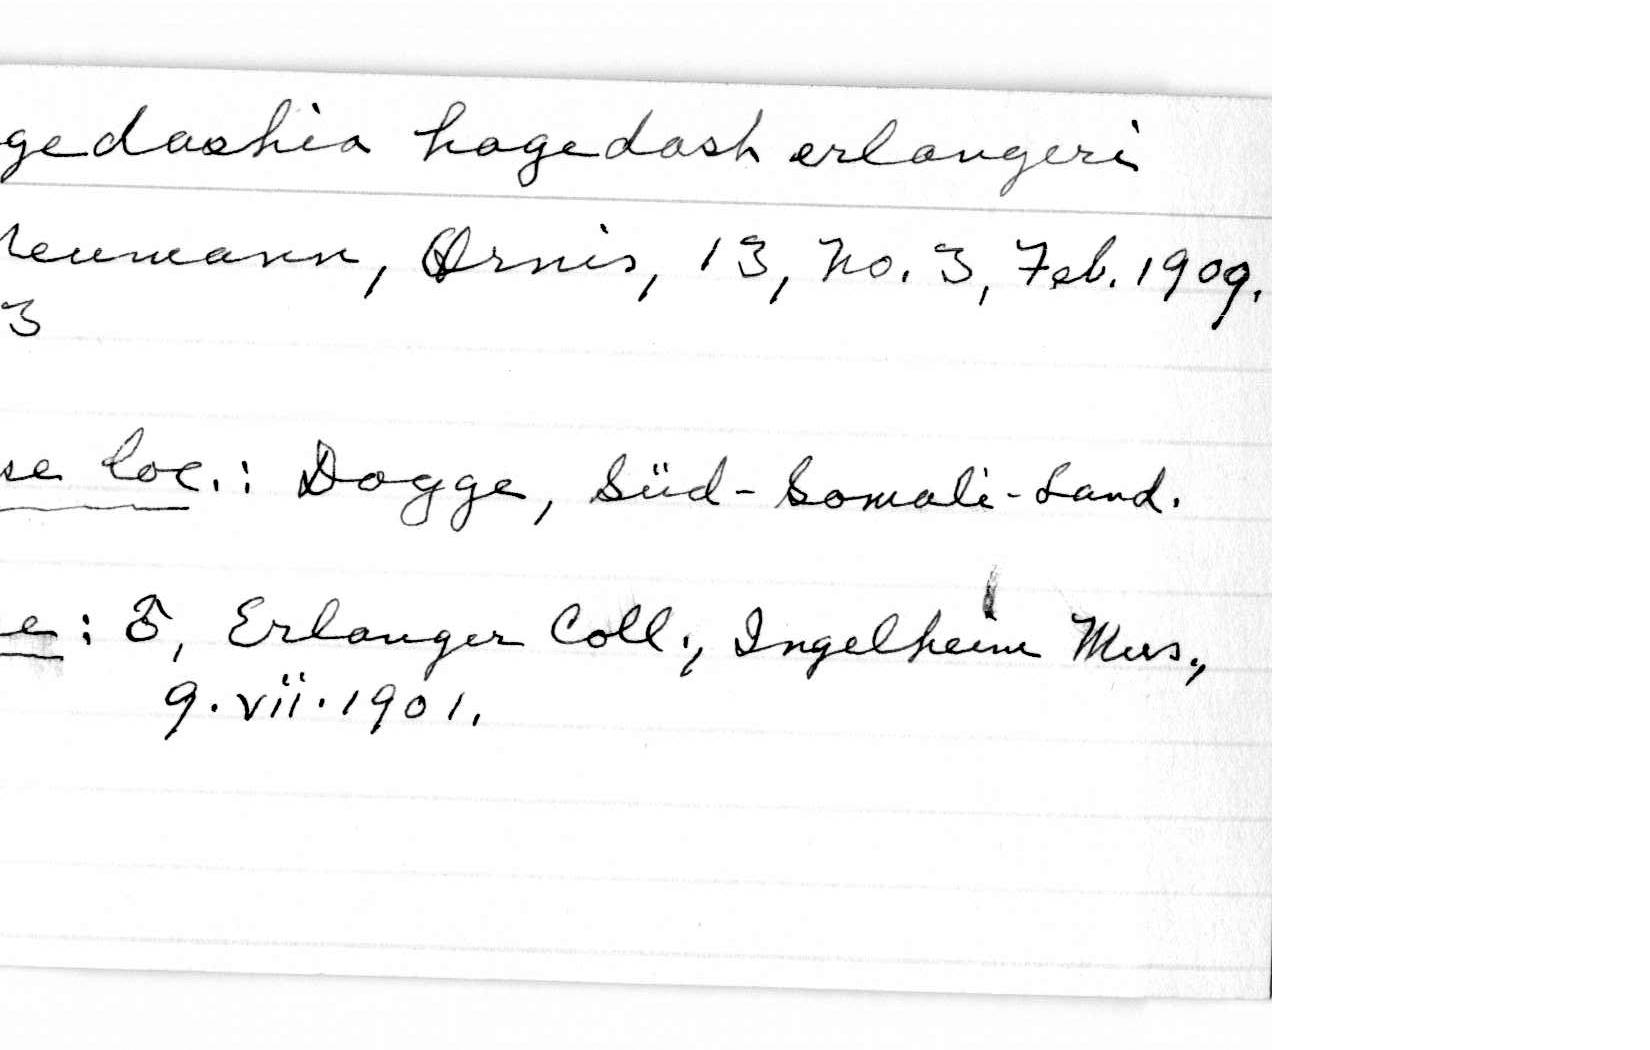 gedashia hagedash erlangeri
Neumann, Ornis, 13, No. 3, Feb. 1909.
3
se loc.: Dogge, Süd-Somali-Land.
e: ♂, Erlanger Coll., Ingelheim Mus.,
9.vii.1901.